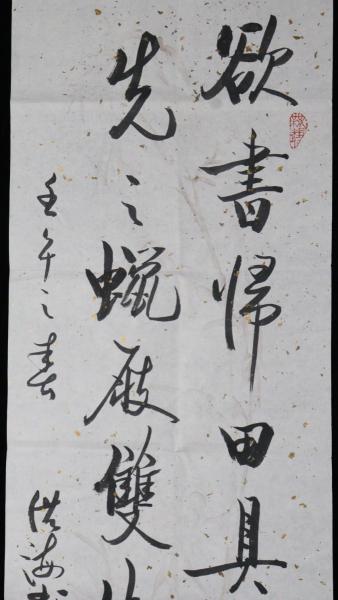 欲書歸田具
先之蠟屐雙
壬午之春
洪海